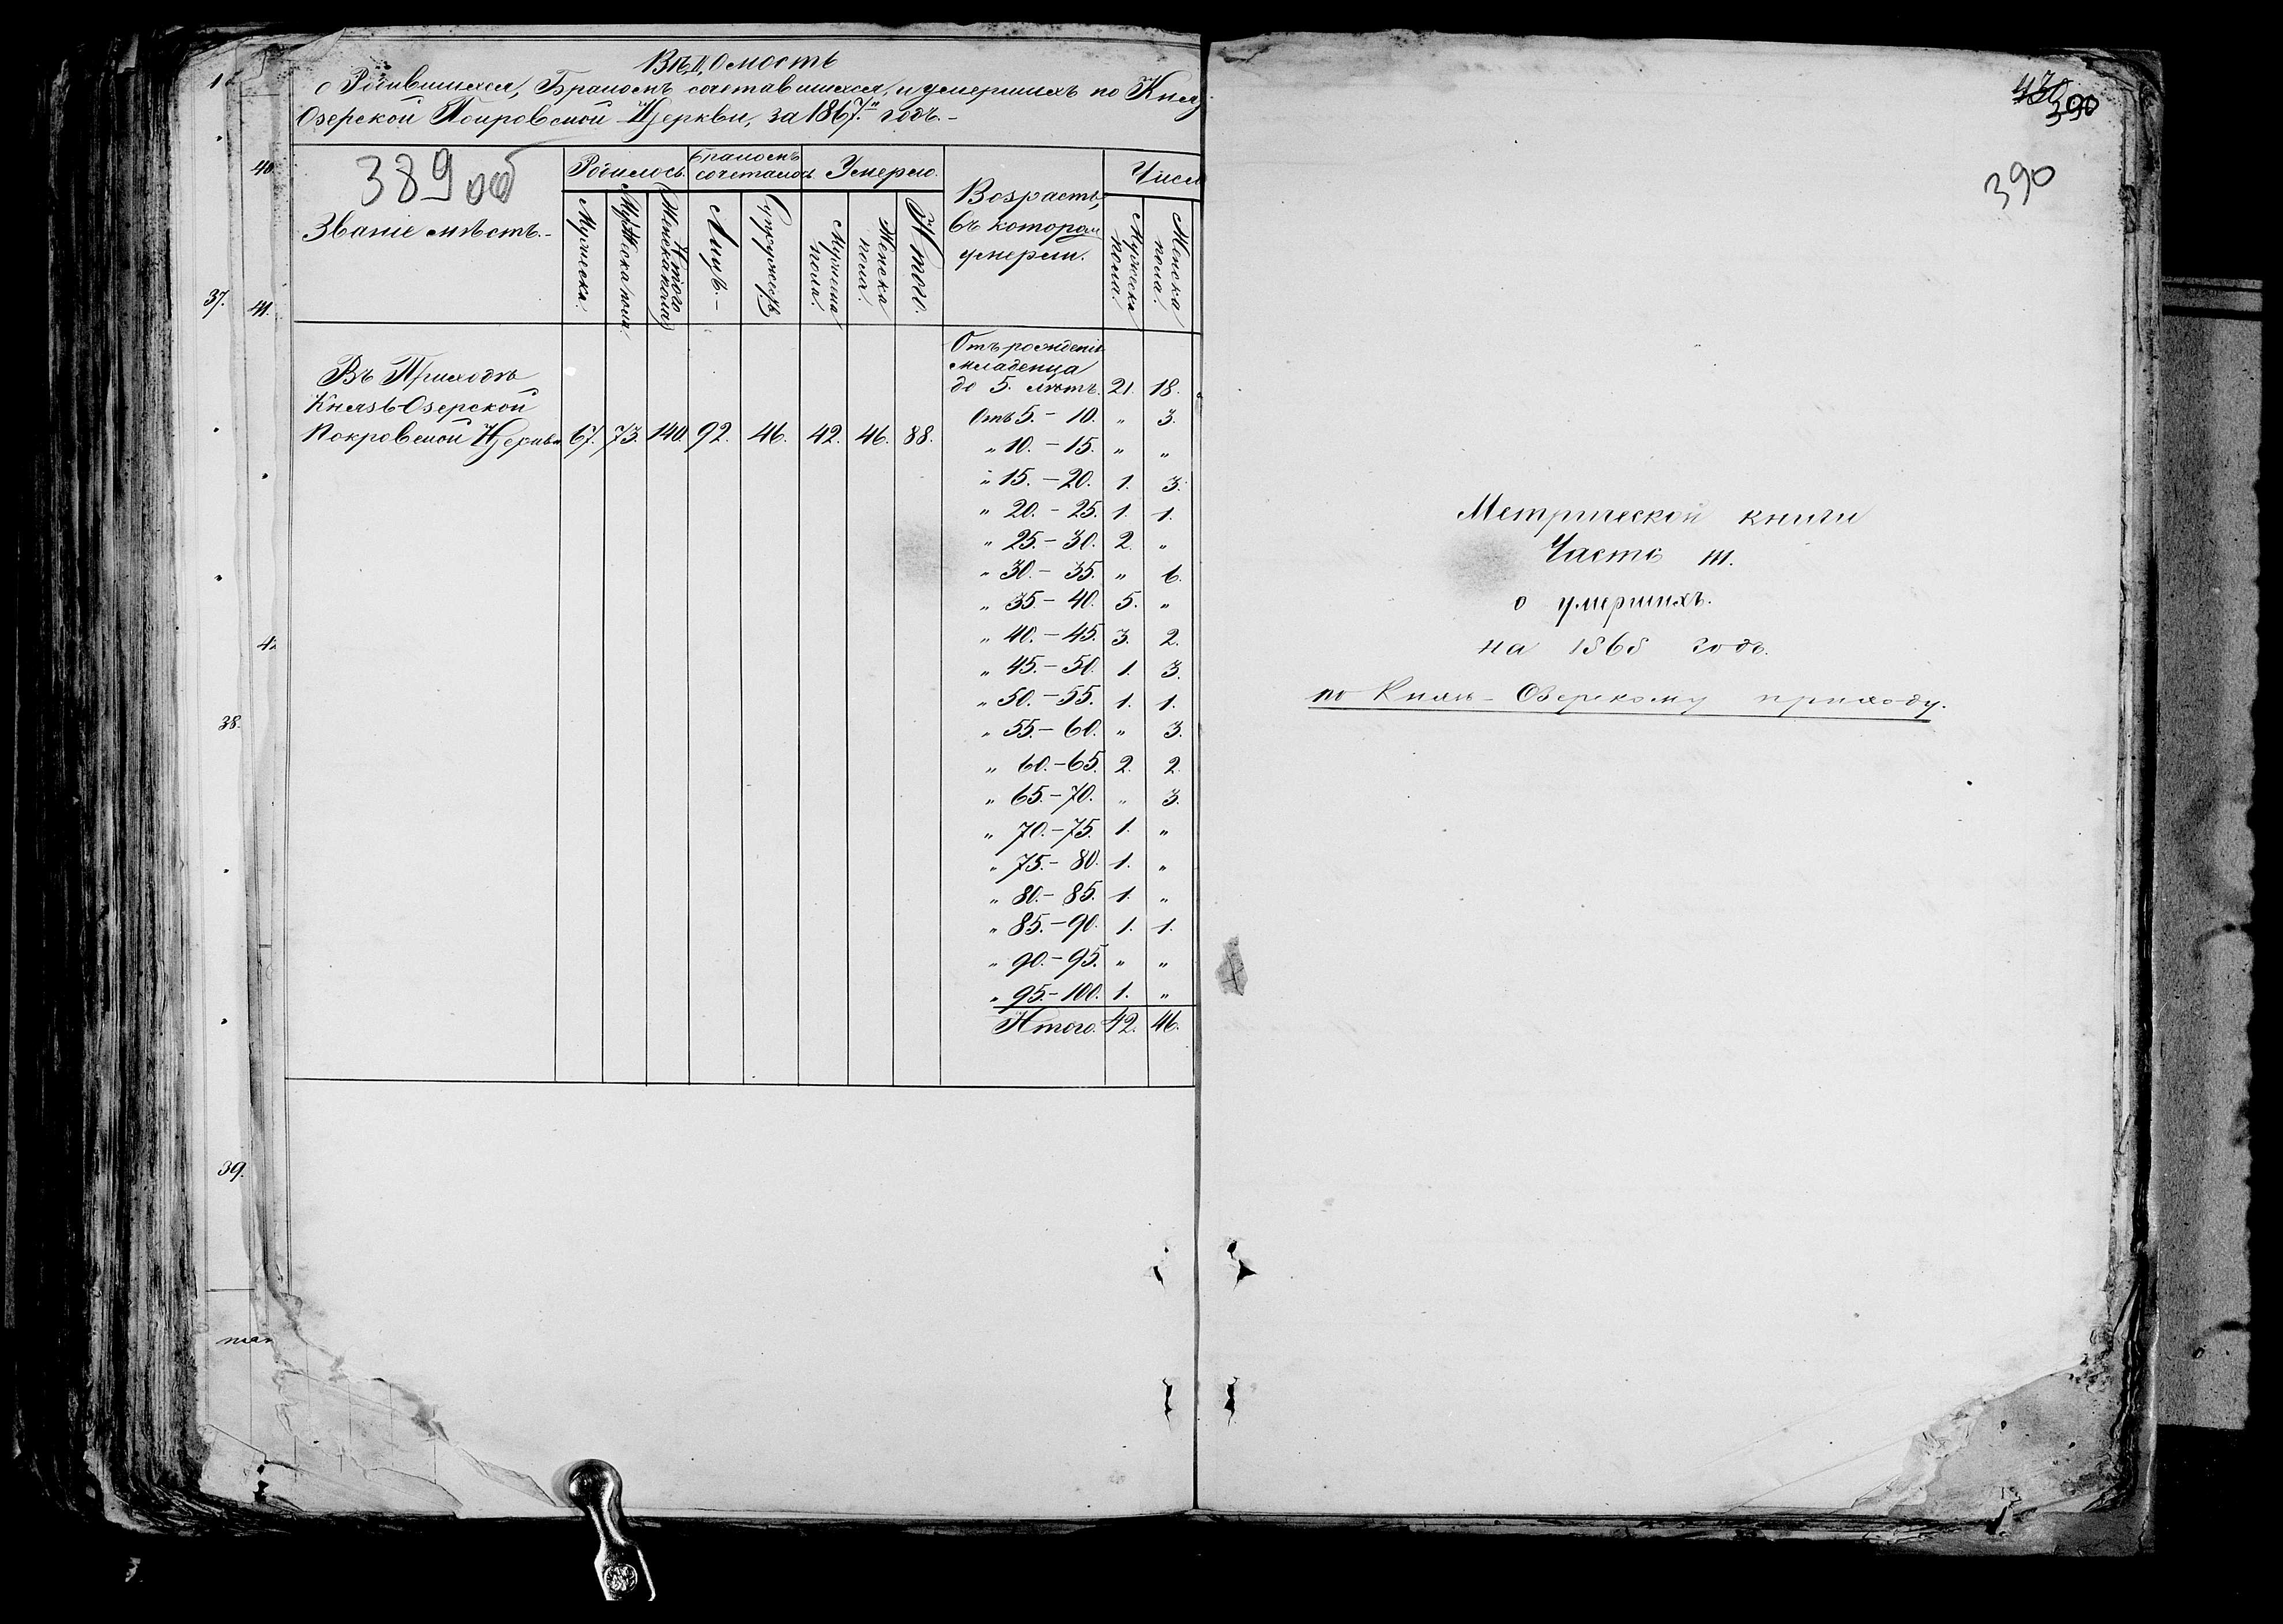 Вѣдомость
о Родившихся, Бракомъ сочетавшихся, и умершихъ по Князь
Озерской Покровской Церкви, за 1867й годъ.-
389 об
Званіе мѣстъ.-
Родилось.
Бракомъ сочеталось.
Умерло.
Возрастъ,
въ котором
умерли.
Числ
Мужеска.
Женска пола
Итого
Лицъ.-
Супружествъ
Мужеска пола.
Женска пола.
Итого.
Мужеска пола.
Женска пола.
Въ Приходѣ
Князь-Озерской
Покровской Церкви 67. 73. 140. 92. 46. 42. 46. 88.
Отъ рожденія
младенца
до 5. лѣтъ. 21. 18.
Отъ 5. - 10. " 3.
" 10. - 15. " "
" 15. - 20. 1. 3.
" 20. - 25. 1. 1.
" 25. - 30. 2. "
" 30. - 35. " 6.
" 35. - 40. 5. "
" 40. - 45. 3. 2.
" 45. - 50. 1. 3.
" 50. - 55. 1. 1.
" 55. - 60. " 3.
" 60. - 65. 2. 2.
" 65. - 70. " 3.
" 70. - 75. 1. "
" 75. - 80. 1. "
" 80. - 85. 1. "
" 85. - 90. 1. 1.
" 90. - 95. " "
" 95. - 100. 1. "
Итого. 42. 46.
40.
37.
41.
38.
39.
390
390
Метрической книги
Часть III.
о умершихъ.
на 1868 годъ.
по Князь-Озерскому приходу.